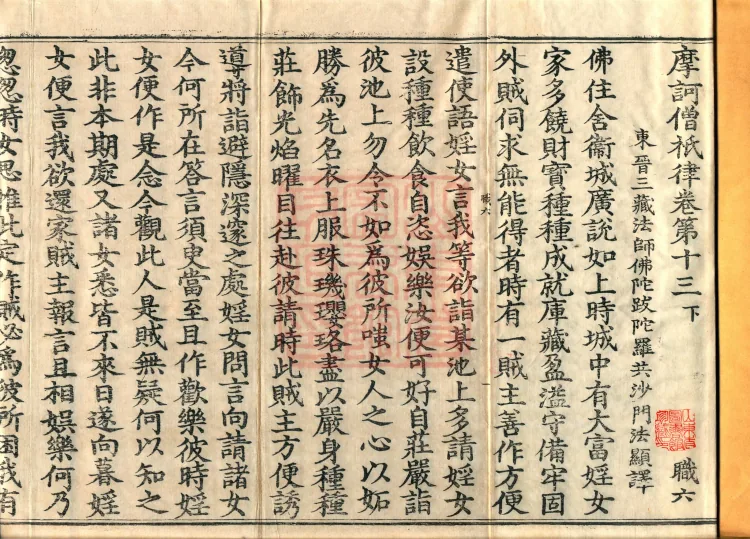 摩訶僧祇律卷第十三下
職六
東晉三藏法師佛陀跋陀羅共沙門法顯譯
佛住舍衞城廣說如上時城中有大富婬女
家多饒財寶種種成就庫藏盈溢守備牢固
外賊伺求無能得者時有一賊主善作方便
職六
遣使語婬女言我等欲詣某池上多請婬女
設種種飲食自恣娛樂汝便可好自莊嚴詣
彼池上勿令不如爲彼所嗤女人之心以妬
勝為先名衣上服珠璣瓔珞盡以嚴身種種
莊飾光焰曜目往赴彼請時此賊主方便誘
導將詣避隱深邃之處婬女問言向請諸女
今何所在答言須臾當至且作歡樂彼時婬
女便作是念今觀此人是賊無疑何以知之
此非本期處又諸女悉皆不來日遂向暮婬
女便言我欲還家賊主報言且相娛樂何乃
怱怱時女思惟此定作賊必爲彼所困我有